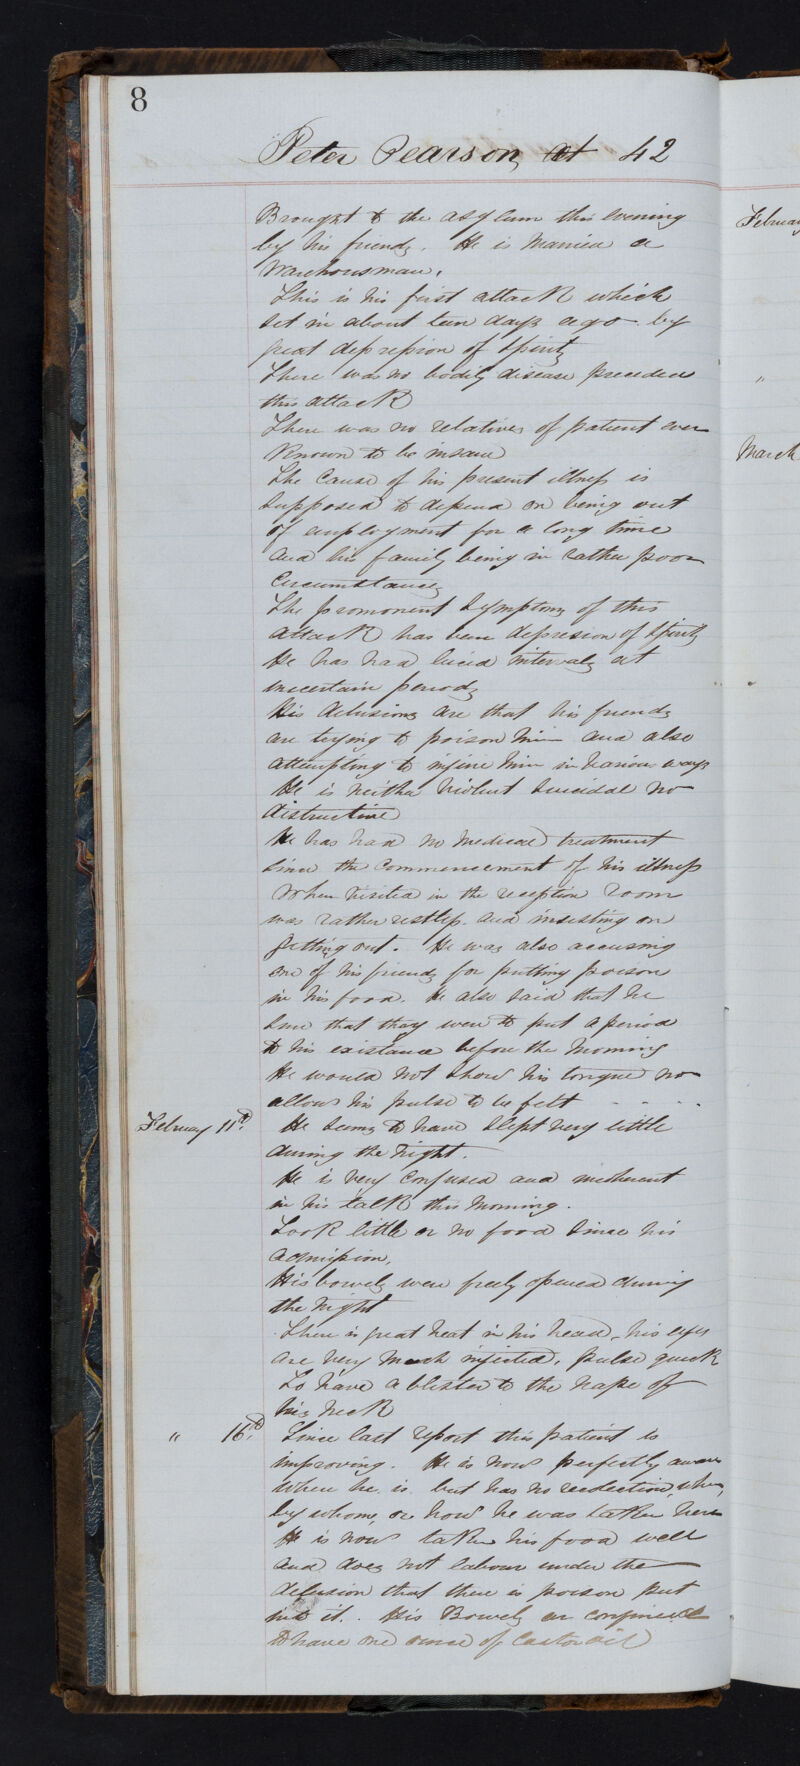 8
Peter Pearson, at 42
Brought to the asylum this evening
by his friends. He is Married a
Warehousman.
This is his first attack which
set in about teen days ago by
great depression of spirits
There was no bodily disease preceded
this attack
There was no relatives of patient ever
Known to be insane
The Cause of his present illness is
supposed to depend on being out
of employment for a long time
And his family being in rather poor
Circumstances
The promonent Symptoms of this
attack has been depression of spirits
He has had lucid intervals at
uncertain periods
His delusions are that his friends
are trying to poison him and also
attempting to injure him in various ways
He is neither violent suicidal no
distructive
He has had no medical treatment
since the commencement of his illness
When visited in the reception room
was rather restless and insisting on
getting out. He was also accusing
one of his friends for putting poison
in his food. He also said that he
saw that thay were to put a period
to his existance before the morning
He would not show his tongue no
allow his pulse to be felt - - - -
February 11th. He seems to have slept very little
during the night.
He is very confused and incoherent
in his talk this morning.
Took little or no food since his
admission.
His bowels were freely opened during
the night
There is great heat in his head, his eyes
are very much injected, pulse quick
To have a blister to the nape of
his neck
" 16th. Since last report this patient is
improving. He is now perfectly aware
where he is but has no recollection when,
by whom, or how he was taken here
He is now taken his food well
and does not labour under the
delusion that there is poison put
into it. His Bowels are confined
to have one ounce of Castor oil
February
"
March